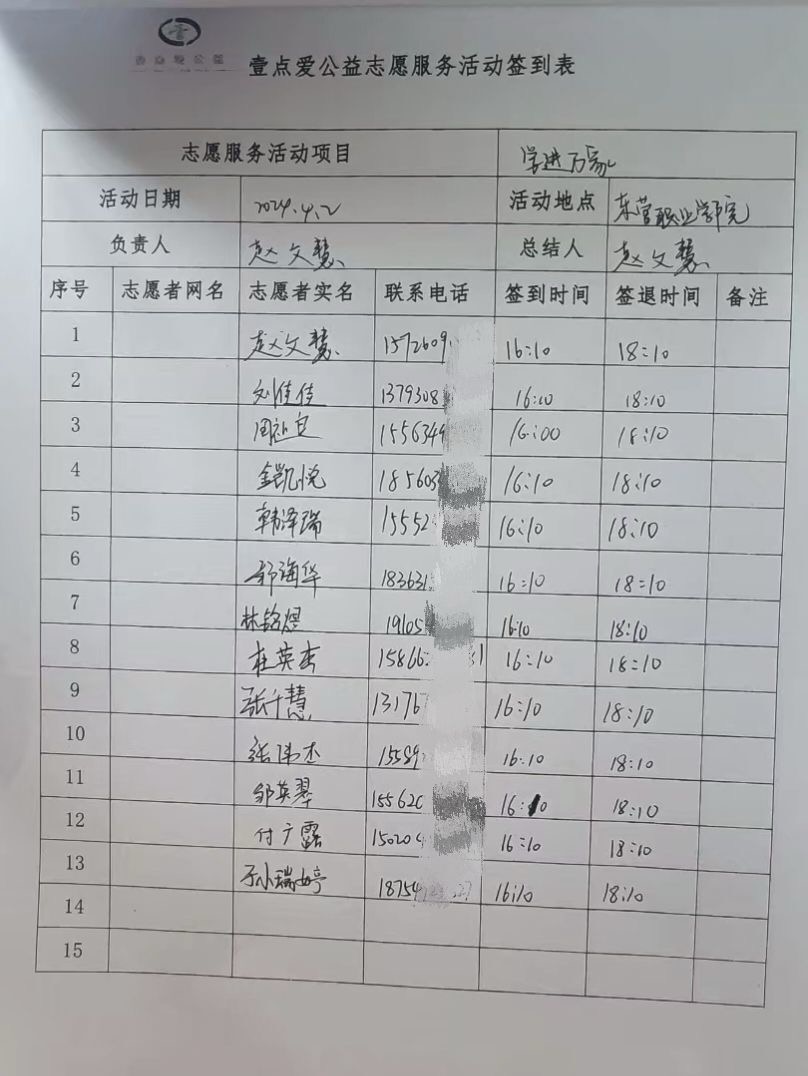 壹点爱公益
壹点爱公益志愿服务活动签到表
志愿服务活动项目 学进万家
活动日期 2024.4.2 活动地点 东营职业学院
负责人 赵文慧 总结人 赵文慧
序号 志愿者网名 志愿者实名 联系电话 签到时间 签退时间 备注
1 赵文慧 1572609 16:10 18:10
2 刘佳佳 1379308 16:10 18:10
3 1556349 16:00 18:10
4 金凯悦 185603 16:10 18:10
5 韩泽瑞 15552 16:10 18:10
6 郭海华 183631 16:10 18:10
7 林铭煜 19105 16:10 18:10
8 杜英杰 15866 31 16:10 18:10
9 张千慧 13176 16:10 18:10
10 张伟杰 15589 16:10 18:10
11 邹英翠 155620 16:10 18:10
12 付广露 15020 16:10 18:10
13 孙瑞婷 18754 27 16:10 18:10
14
15